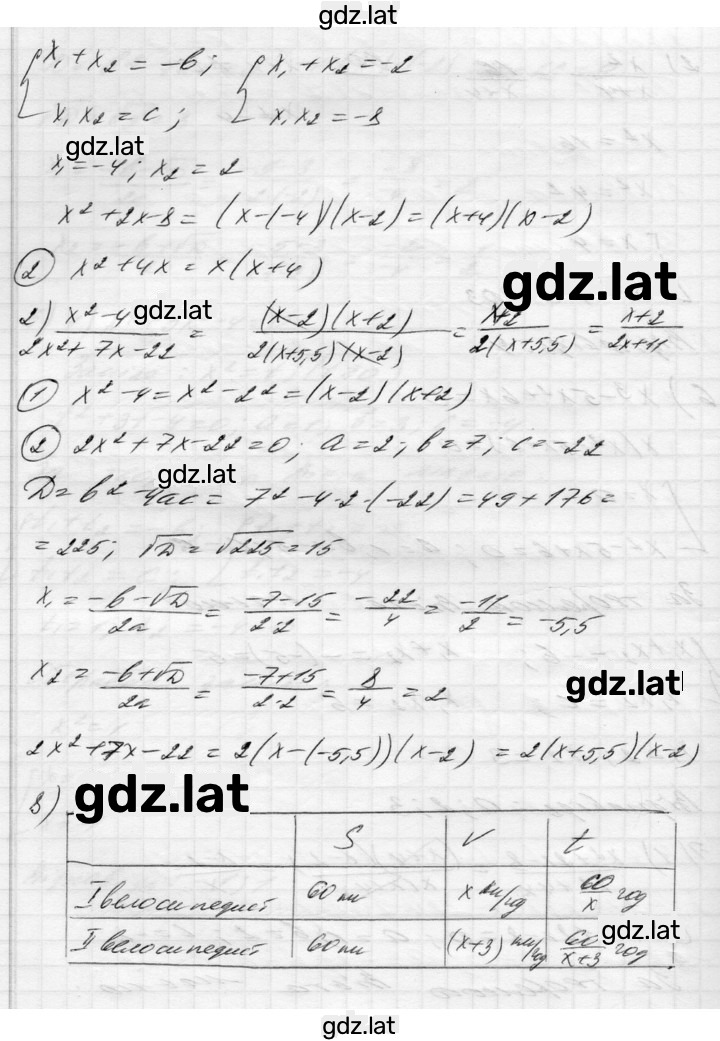 gdz.lat
x₁ + x₂ = -b; x₁ + x₂ = -2
x₁x₂ = c; x₁x₂ = -8
gdz.lat
x₁ = -4; x₂ = 2
x² + 2x - 8 = (x-(-4))(x-2) = (x+4)(x-2)
② x² + 4x = x(x+4)
gdz.lat
2) (x² - 4)/(2x² + 7x - 22) = ((x-2)(x+2))/(2(x+5,5)(x-2)) = (x+2)/(2(x+5,5)) = (x+2)/(2x+11)
gdz.lat
① x² - 4 = x² - 2² = (x-2)(x+2)
② 2x² + 7x - 22 = 0; a = 2; b = 7; c = -22
gdz.lat
D = b² - 4ac = 7² - 4·2·(-22) = 49 + 176 =
= 225; √D = √225 = 15
x₁ = (-b-√D)/2a = (-7-15)/(2·2) = -22/4 = -11/2 = -5,5
x₂ = (-b+√D)/2a = (-7+15)/(2·2) = 8/4 = 2
gdz.lat
2x² + 7x - 22 = 2(x-(-5,5))(x-2) = 2(x+5,5)(x-2)
8) gdz.lat
S V t
I велосипедист 60 км x км/год 60/x год
II велосипедист 60 км (x+3) км/год 60/(x+3) год
gdz.lat
gdz.lat